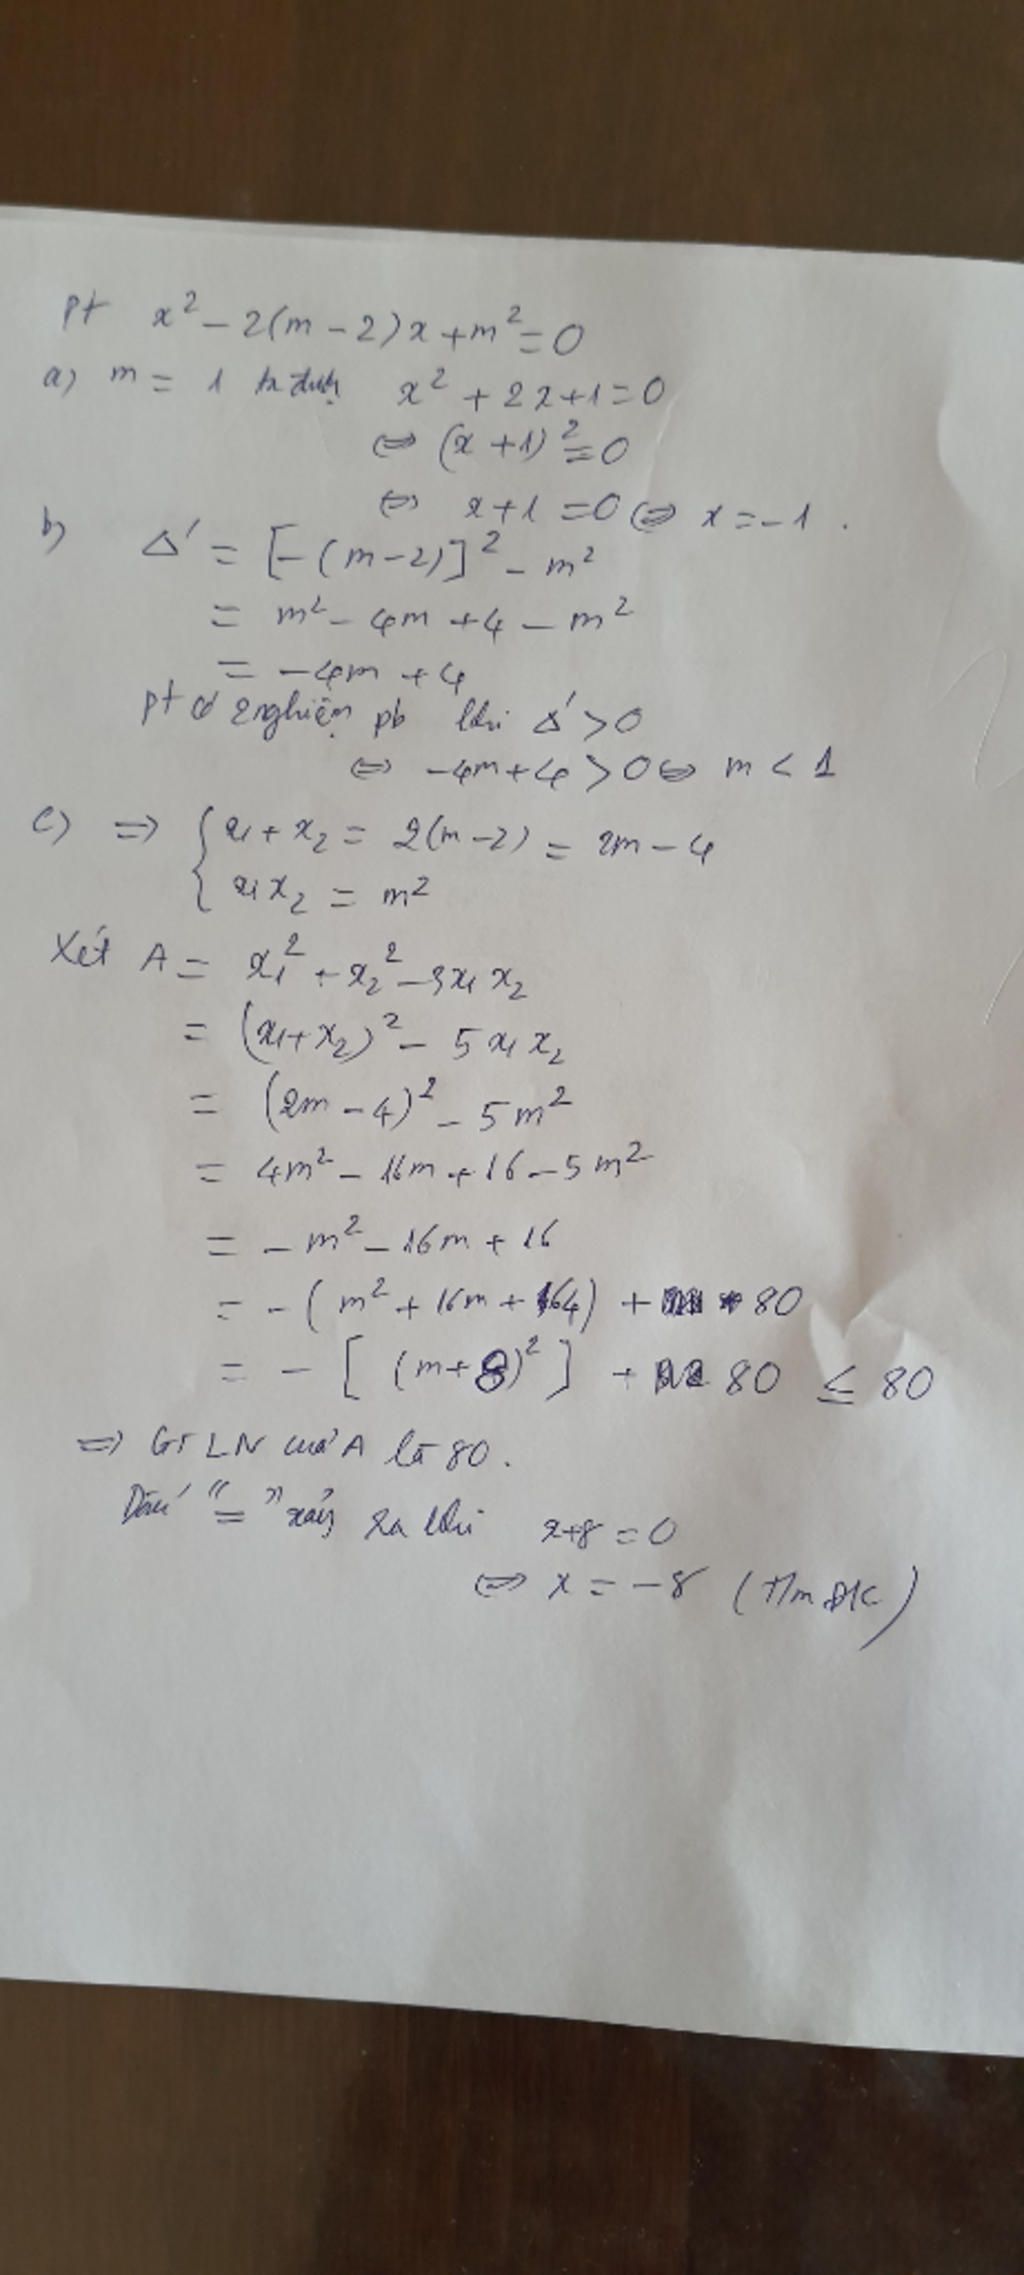 pt x² - 2(m - 2)x + m² = 0
a) m = 1 ta được x² + 2x + 1 = 0
⇔ (x + 1)² = 0
⇔ x + 1 = 0 ⇔ x = -1 .
b) Δ' = [-(m - 2)]² - m²
= m² - 4m + 4 - m²
= -4m + 4
pt có 2 nghiệm pb khi Δ' > 0
⇔ -4m + 4 > 0 ⇔ m < 1
c) ⇒ { x₁ + x₂ = 2(m - 2) = 2m - 4
x₁x₂ = m²
Xét A = x₁² + x₂² - 3x₁x₂
= (x₁ + x₂)² - 5x₁x₂
= (2m - 4)² - 5m²
= 4m² - 16m + 16 - 5m²
= -m² - 16m + 16
= -(m² + 16m + 64) + 80
= -[(m + 8)²] + 80 ≤ 80
⇒ GTLN của A là 80.
Dấu "=" xảy ra khi x + 8 = 0
⇔ x = -8 (T/m ĐK)